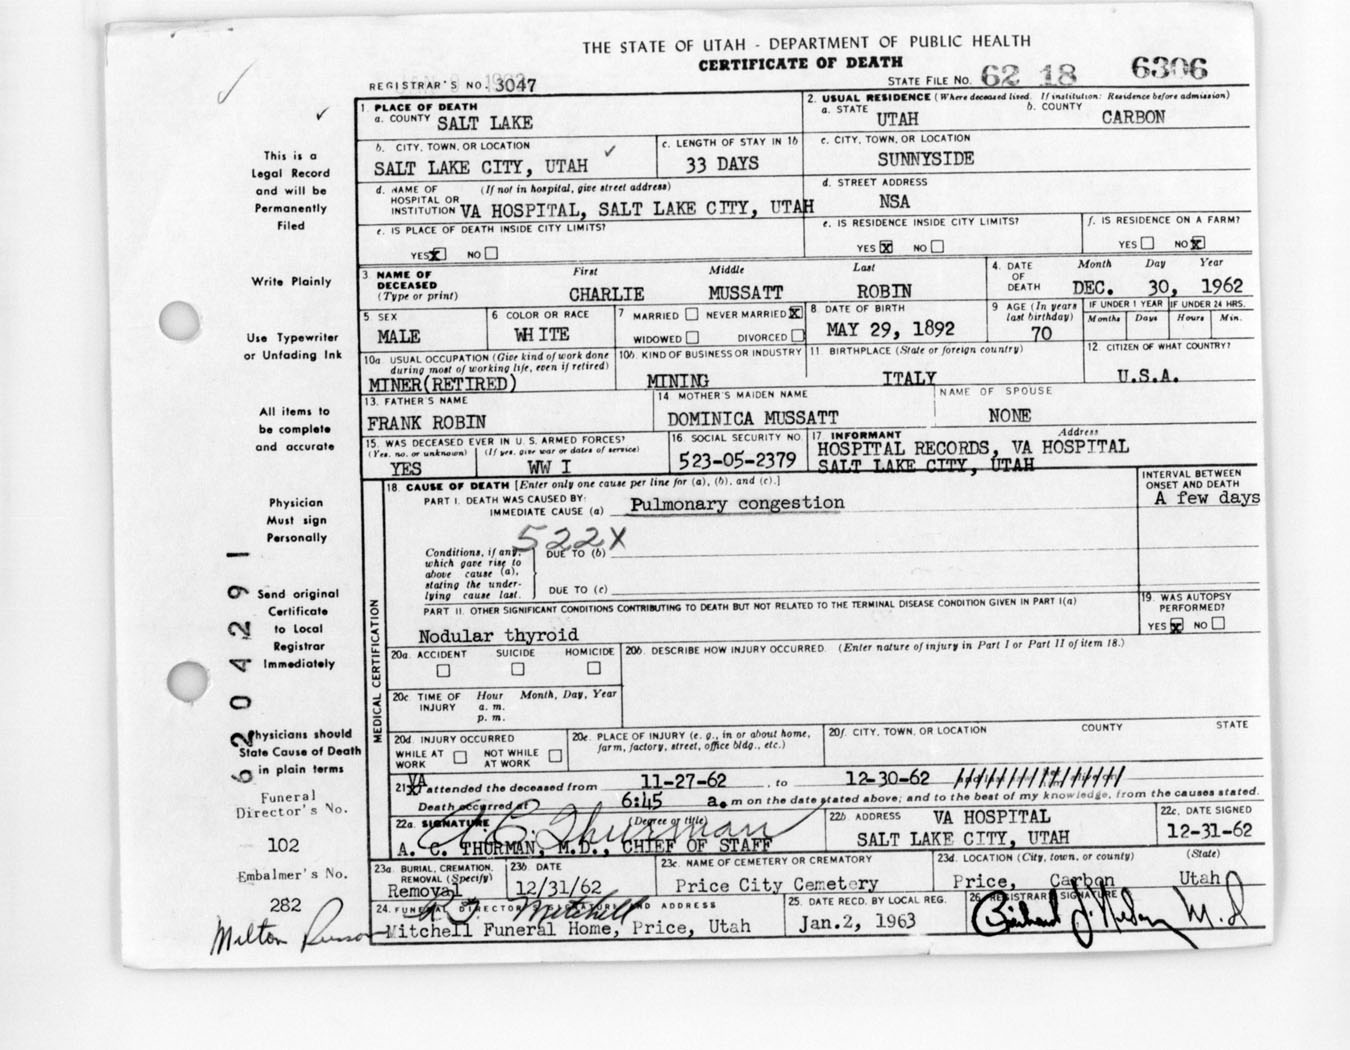 THE STATE OF UTAH - DEPARTMENT OF PUBLIC HEALTH
CERTIFICATE OF DEATH
REGISTRAR'S NO. 3047
STATE FILE NO. 62 18 6306
1. PLACE OF DEATH
a. COUNTY SALT LAKE
2. USUAL RESIDENCE (Where deceased lived. If institution: Residence before admission)
a. STATE UTAH
b. COUNTY CARBON
b. CITY, TOWN, OR LOCATION
SALT LAKE CITY, UTAH
c. LENGTH OF STAY IN 1b
33 DAYS
c. CITY, TOWN, OR LOCATION
SUNNYSIDE
d. NAME OF HOSPITAL OR INSTITUTION (If not in hospital, give street address)
VA HOSPITAL, SALT LAKE CITY, UTAH
d. STREET ADDRESS
NSA
e. IS PLACE OF DEATH INSIDE CITY LIMITS?
YES X NO
e. IS RESIDENCE INSIDE CITY LIMITS?
YES X NO
f. IS RESIDENCE ON A FARM?
YES NO X
3 NAME OF DECEASED (Type or print)
First Middle Last
CHARLIE MUSSATT ROBIN
4. DATE OF DEATH
Month Day Year
DEC. 30, 1962
5. SEX
MALE
6 COLOR OR RACE
WHITE
7 MARRIED NEVER MARRIED X
WIDOWED DIVORCED
8 DATE OF BIRTH
MAY 29, 1892
9 AGE (In years last birthday)
70
IF UNDER 1 YEAR IF UNDER 24 HRS.
Months Days Hours Min.
10a USUAL OCCUPATION (Give kind of work done during most of working life, even if retired)
MINER(RETIRED)
10b. KIND OF BUSINESS OR INDUSTRY
MINING
11. BIRTHPLACE (State or foreign country)
ITALY
12. CITIZEN OF WHAT COUNTRY?
U.S.A.
13. FATHER'S NAME
FRANK ROBIN
14. MOTHER'S MAIDEN NAME
DOMINICA MUSSATT
NAME OF SPOUSE
NONE
15. WAS DECEASED EVER IN U. S. ARMED FORCES?
(Yes, no, or unknown) (If yes, give war or dates of service)
YES WW I
16. SOCIAL SECURITY NO.
523-05-2379
17 INFORMANT Address
HOSPITAL RECORDS, VA HOSPITAL
SALT LAKE CITY, UTAH
MEDICAL CERTIFICATION
18. CAUSE OF DEATH [Enter only one cause per line for (a), (b), and (c).]
PART I. DEATH WAS CAUSED BY:
IMMEDIATE CAUSE (a) Pulmonary congestion
INTERVAL BETWEEN ONSET AND DEATH
A few days
522X
Conditions, if any, which gave rise to above cause (a), stating the underlying cause last.
DUE TO (b)
DUE TO (c)
PART II. OTHER SIGNIFICANT CONDITIONS CONTRIBUTING TO DEATH BUT NOT RELATED TO THE TERMINAL DISEASE CONDITION GIVEN IN PART I(a)
Nodular thyroid
19. WAS AUTOPSY PERFORMED?
YES X NO
20a. ACCIDENT SUICIDE HOMICIDE
20b. DESCRIBE HOW INJURY OCCURRED. (Enter nature of injury in Part I or Part II of item 18.)
20c TIME OF INJURY Hour Month, Day, Year
a. m.
p. m.
20d. INJURY OCCURRED
WHILE AT WORK NOT WHILE AT WORK
20e. PLACE OF INJURY (e. g., in or about home, farm, factory, street, office bldg., etc.)
20f. CITY, TOWN, OR LOCATION COUNTY STATE
21. VA attended the deceased from 11-27-62, to 12-30-62
Death occurred at 6:45 a. m on the date stated above; and to the best of my knowledge, from the causes stated.
22a. SIGNATURE (Degree or title)
A. C. Thurman
A. C. THURMAN, M.D., CHIEF OF STAFF
22b. ADDRESS VA HOSPITAL
SALT LAKE CITY, UTAH
22c. DATE SIGNED
12-31-62
23a. BURIAL, CREMATION, REMOVAL (Specify)
Removal
23b. DATE
12/31/62
23c. NAME OF CEMETERY OR CREMATORY
Price City Cemetery
23d. LOCATION (City, town, or county) (State)
Price, Carbon Utah
24. FUNERAL DIRECTOR'S SIGNATURE AND ADDRESS
Mitchell
Mitchell Funeral Home, Price, Utah
25. DATE RECD. BY LOCAL REG.
Jan.2, 1963
26 REGISTRAR'S SIGNATURE
M.D
This is a
Legal Record
and will be
Permanently
Filed
Write Plainly
Use Typewriter
or Unfading Ink
All items to
be complete
and accurate
Physician
Must sign
Personally
Send original
Certificate
to Local
Registrar
Immediately
Physicians should
State Cause of Death
in plain terms
Funeral
Director's No.
102
Embalmer's No.
282
Milton
6204291